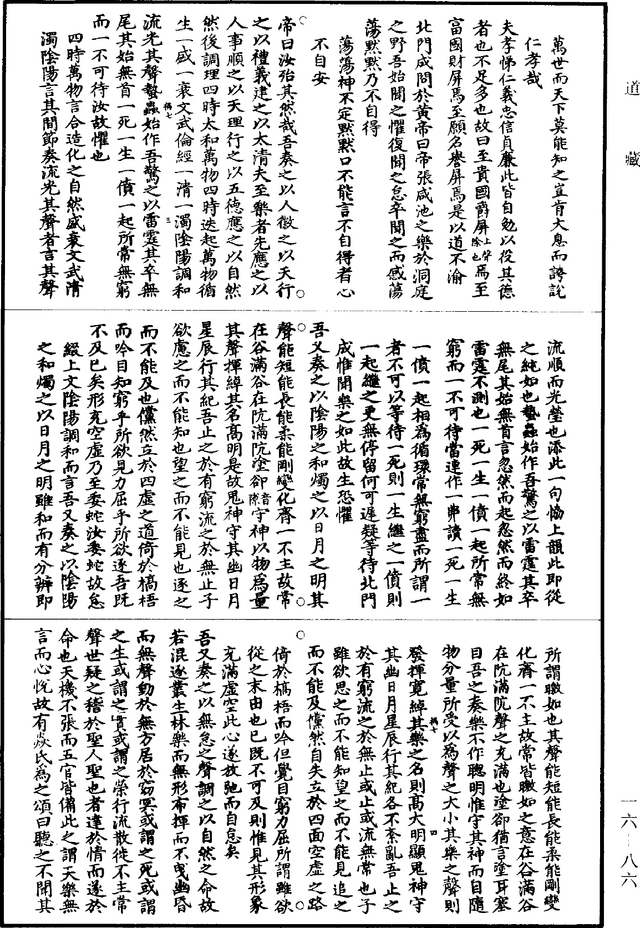 道藏
萬世而天下莫能知之豈肯大息而誇說
仁孝哉
夫孝悌仁義忠信貞廉此皆自勉以役其德
者也不足多也故曰至貴國爵屏上聲除也焉至
富國財屏焉至願名譽屏焉是以道不渝
北門成問於黃帝曰帝張咸池之樂於洞庭
之野吾始聞之懼復聞之怠卒聞之而惑蕩
蕩默默乃不自得
蕩蕩神不定默默口不能言不自得者心
不自安
帝曰汝殆其然哉吾奏之以人徽之以天行
之以禮義建之以太清夫至樂者先應之以
人事順之以天理行之以五德應之以自然
然後調理四時太和萬物四時迭起萬物循
生一盛一衰文武倫經一清一濁陰陽調和
流光其聲蟄蟲始作吾驚之以雷霆其卒無
尾其始無首一死一生一僨一起所常無窮
而一不可待汝故懼也
四時萬物言合造化之自然盛衰文武清
濁陰陽言其間節奏流光其聲者言其聲
流順而光瑩也添此一句恊上韻此即從
之純如也蟄蟲始作吾驚之以雷霆其卒
無尾其始無首言忽然而起忽然而終如
雷霆不測也一死一生一僨一起所常無
窮而一不可待當連作一串讀一死一生
一僨一起相為循環常無窮盡而所謂一
者不可以等待一死則一生繼之一僨則
一起繼之更無停留何可遲疑等待北門
成惟聞樂之如此故生恐懼
吾又奏之以陰陽之和燭之以日月之明其
聲能短能長能柔能剛變化齊一不主故常
在谷滿谷在阬滿阬塗卻音隙守神以物為量
其聲揮綽其名高明是故鬼神守其幽日月
星辰行其紀吾止之於有窮流之於無止子
欲慮之而不能知也望之而不能見也逐之
而不能及也儻然立於四虛之道倚於槁梧
而吟目知窮乎所欲見力屈乎所欲逐吾既
不及已矣形充空虛乃至委蛇汝委蛇故怠
綴上文陰陽調和而言吾又奏之以陰陽
之和燭之以日月之明雖和而有分辨即
所謂皦如也其聲能短能長能柔能剛變
化齊一不主故常皆皦如之意在谷滿谷
在阬滿阬聲之充滿也塗卻猶言塗耳塞
目吾之奏樂不作聰明惟守其神而自隨
物分量所受以為聲之大小其樂之聲則
發揮寬綽其樂之名則高大明顯鬼神守
其幽日月星辰行其紀各不紊亂吾止之
於有窮流之於無止或止或流無常也子
雖欲思之而不能知望之而不能見追之
而不能及儻然自失立於四面空虛之路
倚於槁梧而吟但覺目窮力屈所謂雖欲
從之末由也已既不可及則惟見其形象
充滿虛空此心遂故弛而自怠矣
吾又奏之以無怠之聲調之以自然之命故
若混逐叢生林樂而無形布揮而不曳幽昏
而無聲動於無方居於窈冥或謂之死或謂
之生或謂之實或謂之榮行流散徙不主常
聲世疑之稽於聖人聖也者達於情而遂於
命也天機不張而五官皆備此之謂天樂無
言而心悅故有焱氏為之頌曰聽之不聞其
一六－八六